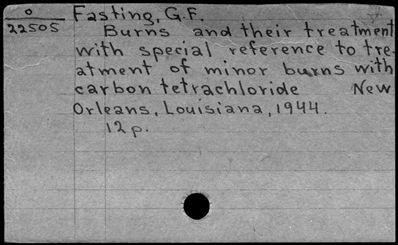 o Fasting, G.F.
22505 Burns and their treatment
with special reference to tre-
atment of minor burns with
carbon tetrachloride New
Orleans, Louisiana, 1944.
12 p.